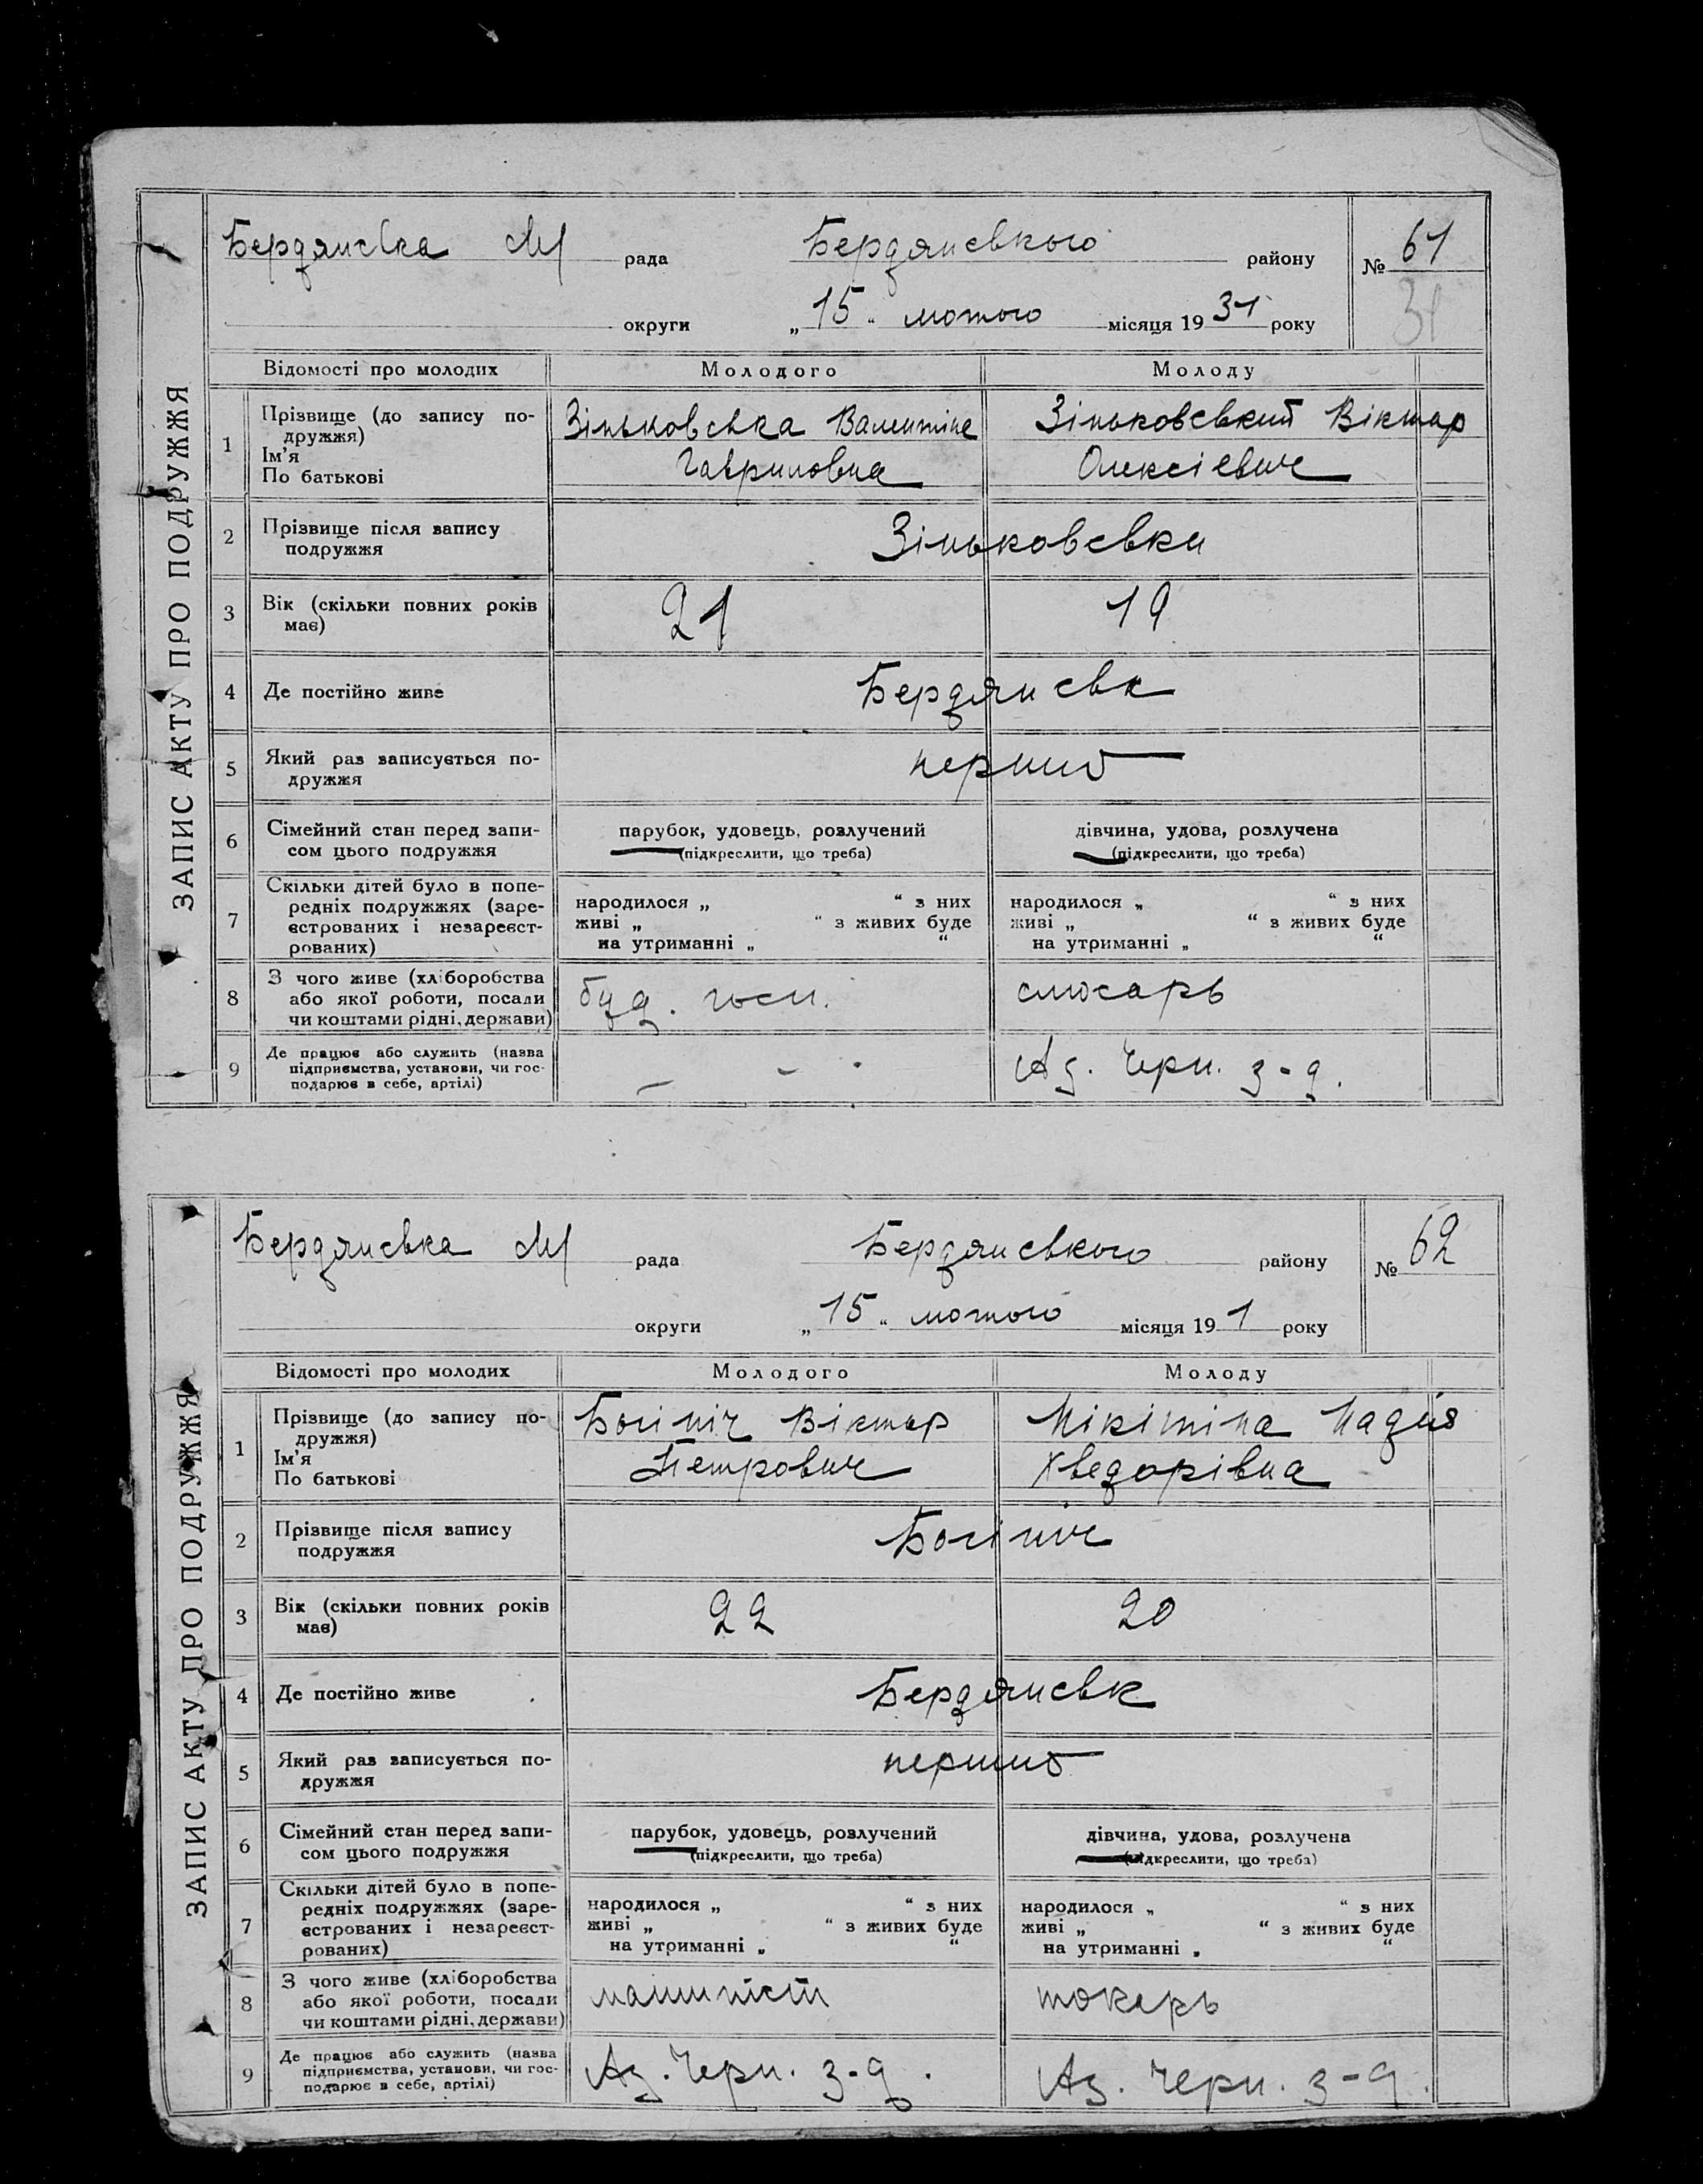 ЗАПИС АКТУ ПРО ПОДРУЖЖЯ
Бердянська М рада Бердянського району № 61
31
округи „15“ лютого місяця 1931 року
Відомості про молодих Молодого Молоду
1 Прізвище (до запису по-
дружжя)
Ім'я
По батькові
Зіньковська Валентіне
Гавриловна
Зіньковський Віктар
Олексієвич
2 Прізвище після запису
подружжя
Зіньковськи
3 Вік (скільки повних років
має)
21 19
4 Де постійно живе Бердянськ
5 Який раз записується по-
дружжя
перший
6 Сімейний стан перед запи-
сом цього подружжя
парубок, удовець, розлучений
(підкреслити, що треба)
дівчина, удова, розлучена
(підкреслити, що треба)
7 Скільки дітей було в попе-
редніх подружжях (заре-
єстрованих і незареєст-
рованих)
народилося „ “ з них
живі „ “ з живих буде
на утриманні „ “
народилося „ “ з них
живі „ “ з живих буде
на утриманні „ “
8 З чого живе (хліборобства
або якої роботи, посади
чи коштами рідні, держави)
буд. госп. слюсарь
9 Де працює або служить (назва
підприємства, установи, чи гос-
подарює в себе, артілі)
– – Аз. Черн. з-д.
ЗАПИС АКТУ ПРО ПОДРУЖЖЯ
Бердянська М рада Бердянського району № 62
округи „15“ лютого місяця 19 1 року
Відомості про молодих Молодого Молоду
1 Прізвище (до запису по-
дружжя)
Ім'я
По батькові
Богініч Віктар
Петрович
Нікітіна Надія
Хведорівна
2 Прізвище після запису
подружжя
Богінич
3 Вік (скільки повних років
має)
22 20
4 Де постійно живе Бердянськ
5 Який раз записується по-
дружжя
перший
6 Сімейний стан перед запи-
сом цього подружжя
парубок, удовець, розлучений
(підкреслити, що треба)
дівчина, удова, розлучена
(підкреслити, що треба)
7 Скільки дітей було в попе-
редніх подружжях (заре-
єстрованих і незареєст-
рованих)
народилося „ “ з них
живі „ “ з живих буде
на утриманні „ “
народилося „ “ з них
живі „ “ з живих буде
на утриманні „ “
8 З чого живе (хліборобства
або якої роботи, посади
чи коштами рідні, держави)
машиніст токарь
9 Де працює або служить (назва
підприємства, установи, чи гос-
подарює в себе, артілі)
Аз. Черн. з-д. Аз. Черн. з-д.